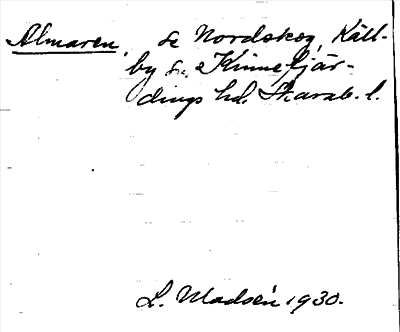 Almaren, se Nordskog, Käll-
by s:n Kinnefjär-
dings hd. Skarab. l.
L. Madsén 1930.